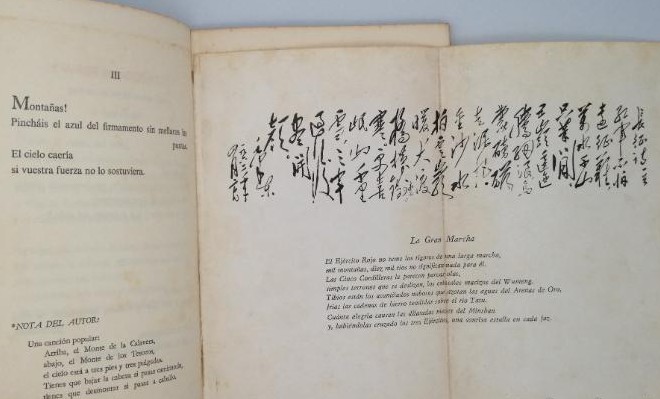 III
Montañas!
Pincháis el azul del firmamento sin mellaros la
punta.
El cielo caería
si vuestra fuerza no lo sostuviera.
*NOTA DEL AUTOR:
Una canción popular:
Arriba, el Monte de la Calavera,
abajo, el Monte de los Tesoros,
el cielo está a tres pies y tres pulgadas.
Tienes que bajar la cabeza si pasas caminando,
tienes que desmontar si pasas a caballo.
長征詩一首
紅軍不怕
遠征難
萬水千山
只等閒
五嶺逶迤
騰細浪烏
蒙磅礴
走泥丸
金沙水
拍雲崖
暖大渡
橋橫鐵索
寒更喜
岷山千里
雪三軍
過後
盡開
顏
毛澤東
La Gran Marcha
El Ejército Rojo no teme los rigores de una larga marcha,
mil montañas, diez mil ríos no significan nada para él.
Las Cinco Cordilleras le parecen
simples terrones que se deslizan, los colosales macizos del Wumeng.
Tibios están los acantilados nubosos que azotan las aguas del Arenas de Oro,
frías las cadenas de hierro tendidas sobre el río Tatu.
Cuánta alegría causan las dilatadas nieves del Minshan.
y, habiéndolas cruzado los tres Ejércitos, una sonrisa estalla en cada faz.